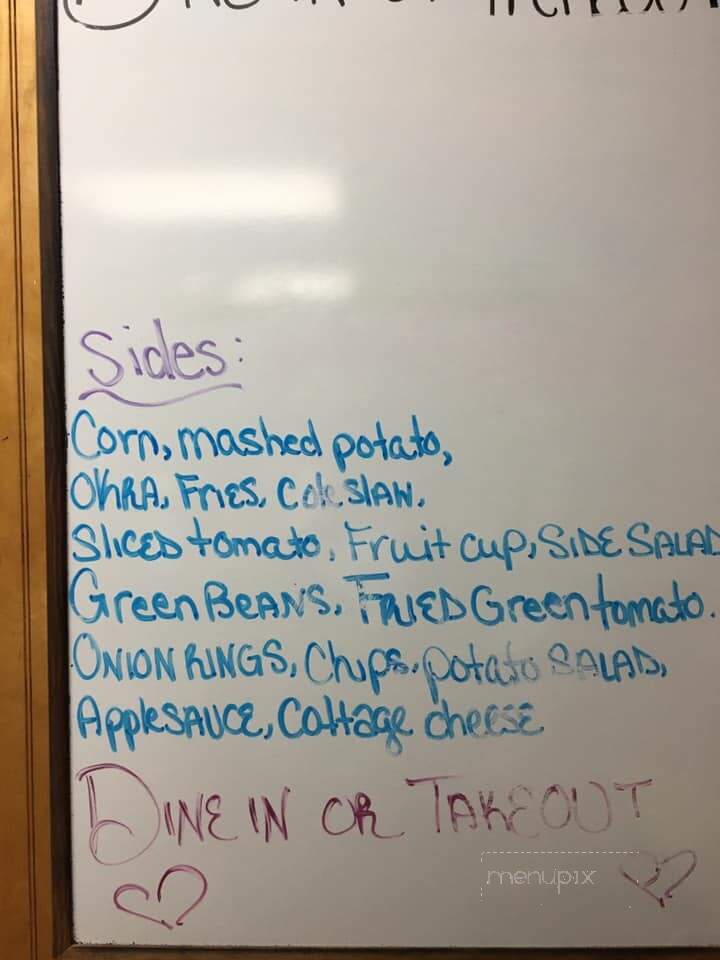 Sides:
Corn, mashed potato,
OKRA, FRIES, Cole SLAW,
SLICED tomato, Fruit cup, SIDE SALAD
Green BEANS, FRIED Green tomato.
ONION RINGS, Chips, potato SALAD,
AppleSAUCE, Cottage cheese
DINE IN OR TAKEOUT
menupix